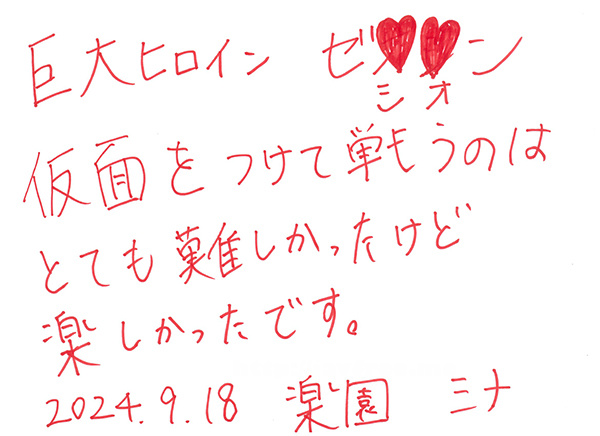 巨大ヒロイン ゼ♥♥ン
シオ
仮面をつけて戦うのは
とても難しかったけど
楽しかったです。
2024.9.18 楽園 ミナ